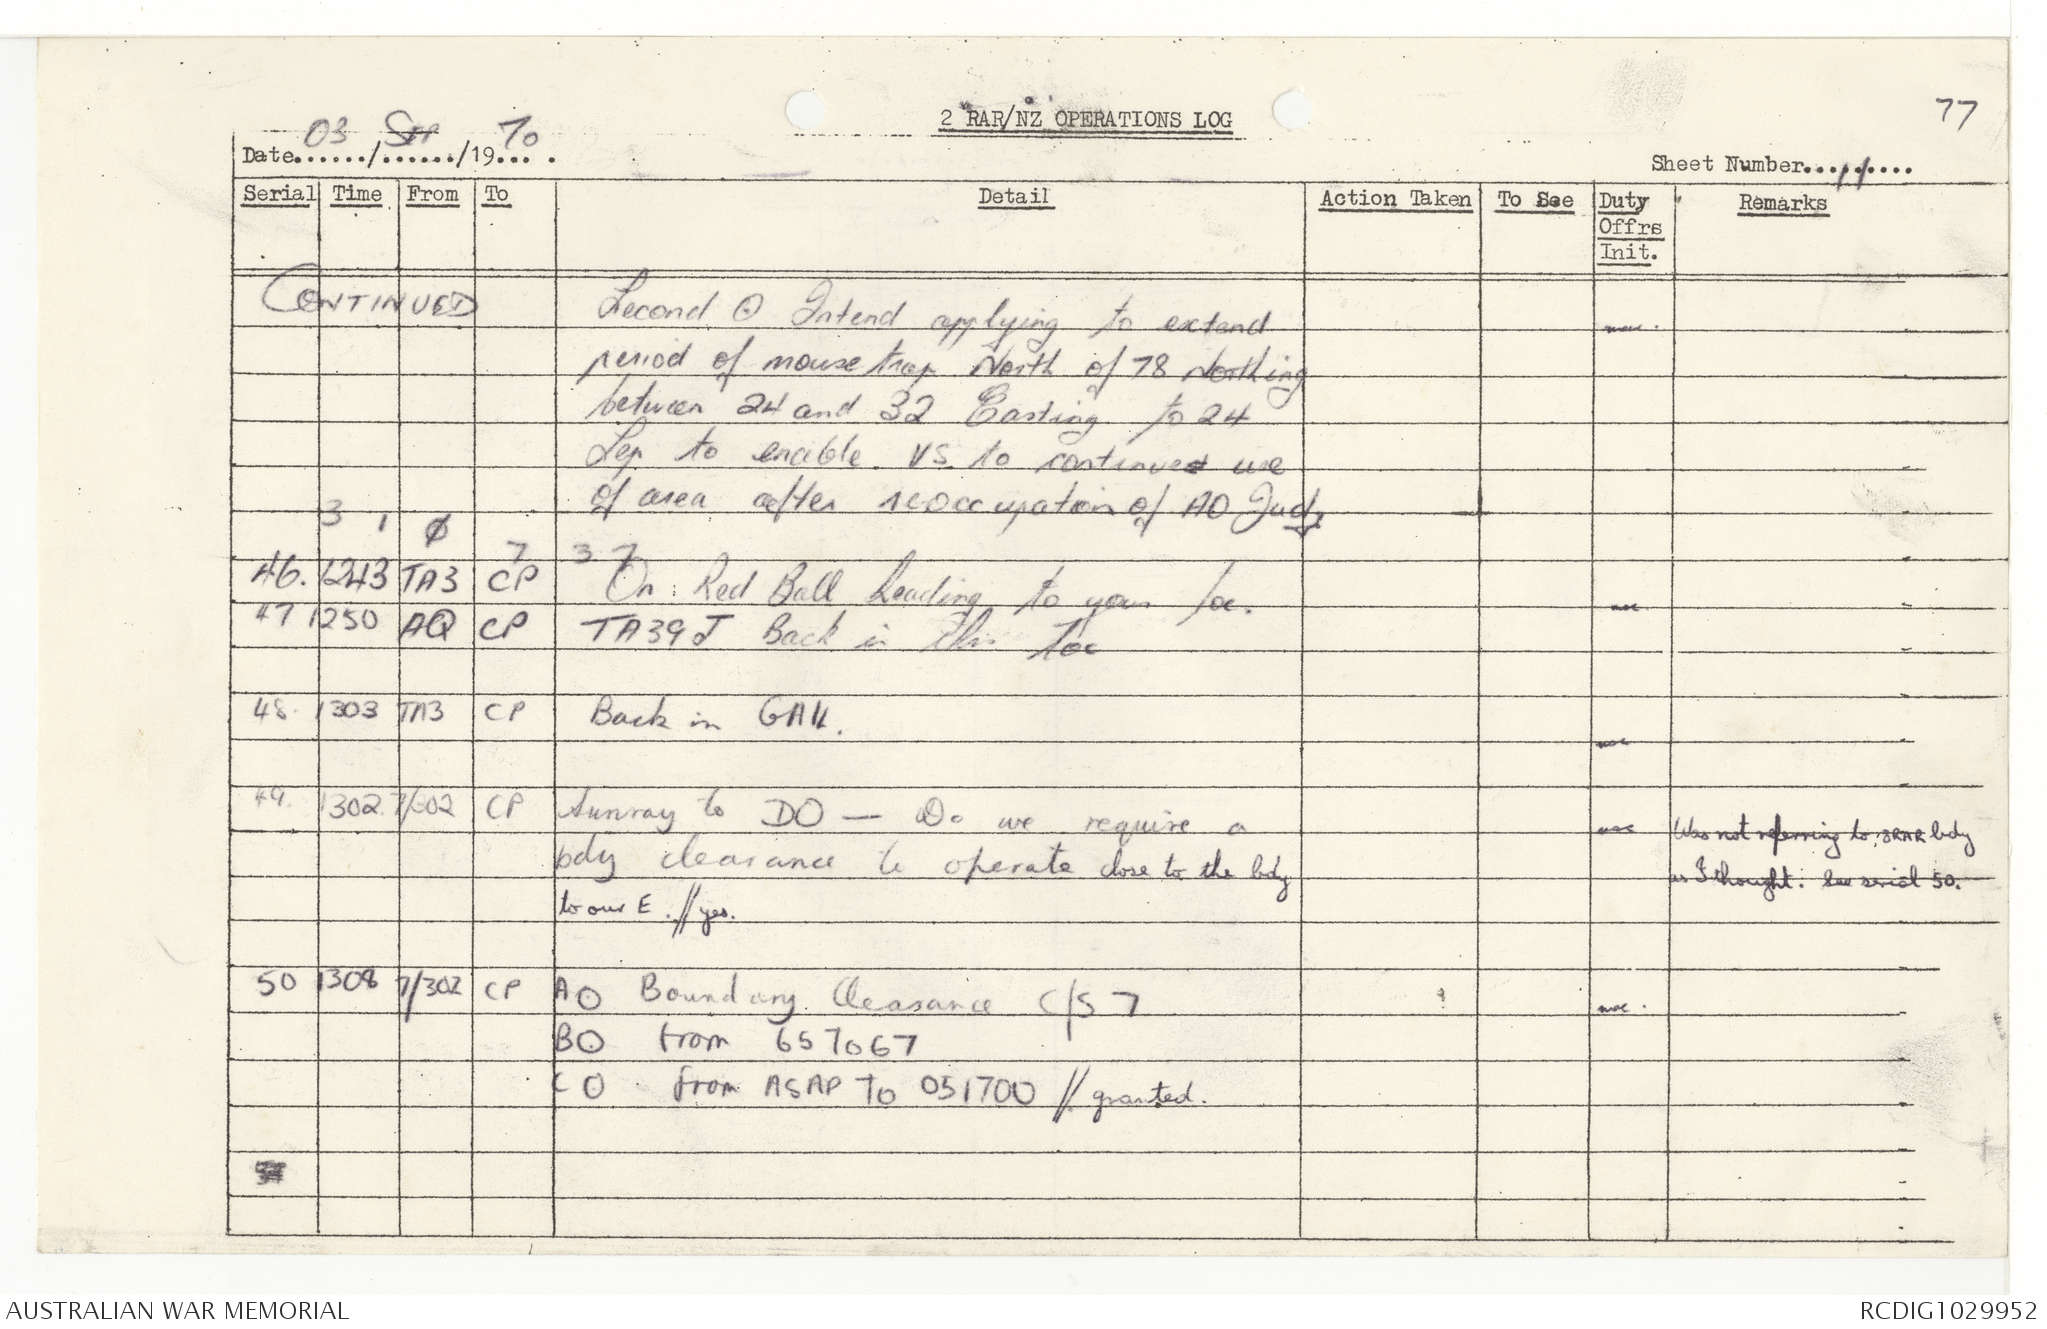 77
2 RAR/NZ OPERATIONS LOG
Date 03 / Sep / 19 70
Sheet Number 11
Serial Time From To Detail Action Taken To See Duty Offrs Init. Remarks
CONTINUED Second ⊙ Intend applying to extend
period of mouse trap North of 78 Northing
between 24 and 32 Easting to 24
Sep to enable VS to continue use
of area after reoccupation of AO Judy
3 1 Ø
7 3 7
46. 1243 TA3 CP On Red Ball heading to your loc.
47 1250 AQ CP TA39J Back in this loc
48. 1303 TA3 CP Back in GAU.
49. 1302 7/302 CP Sunray to DO — Do we require a Was not referring to 3RAR bdy
bdy clearance to operate close to the bdy as I thought. See serial 50.
to our E. // yes.
50 1308 7/302 CP A⊙ Boundary Clearance C/S 7
B⊙ from 657067
C⊙ from ASAP To 051700 // granted.
AUSTRALIAN WAR MEMORIAL
RCDIG1029952